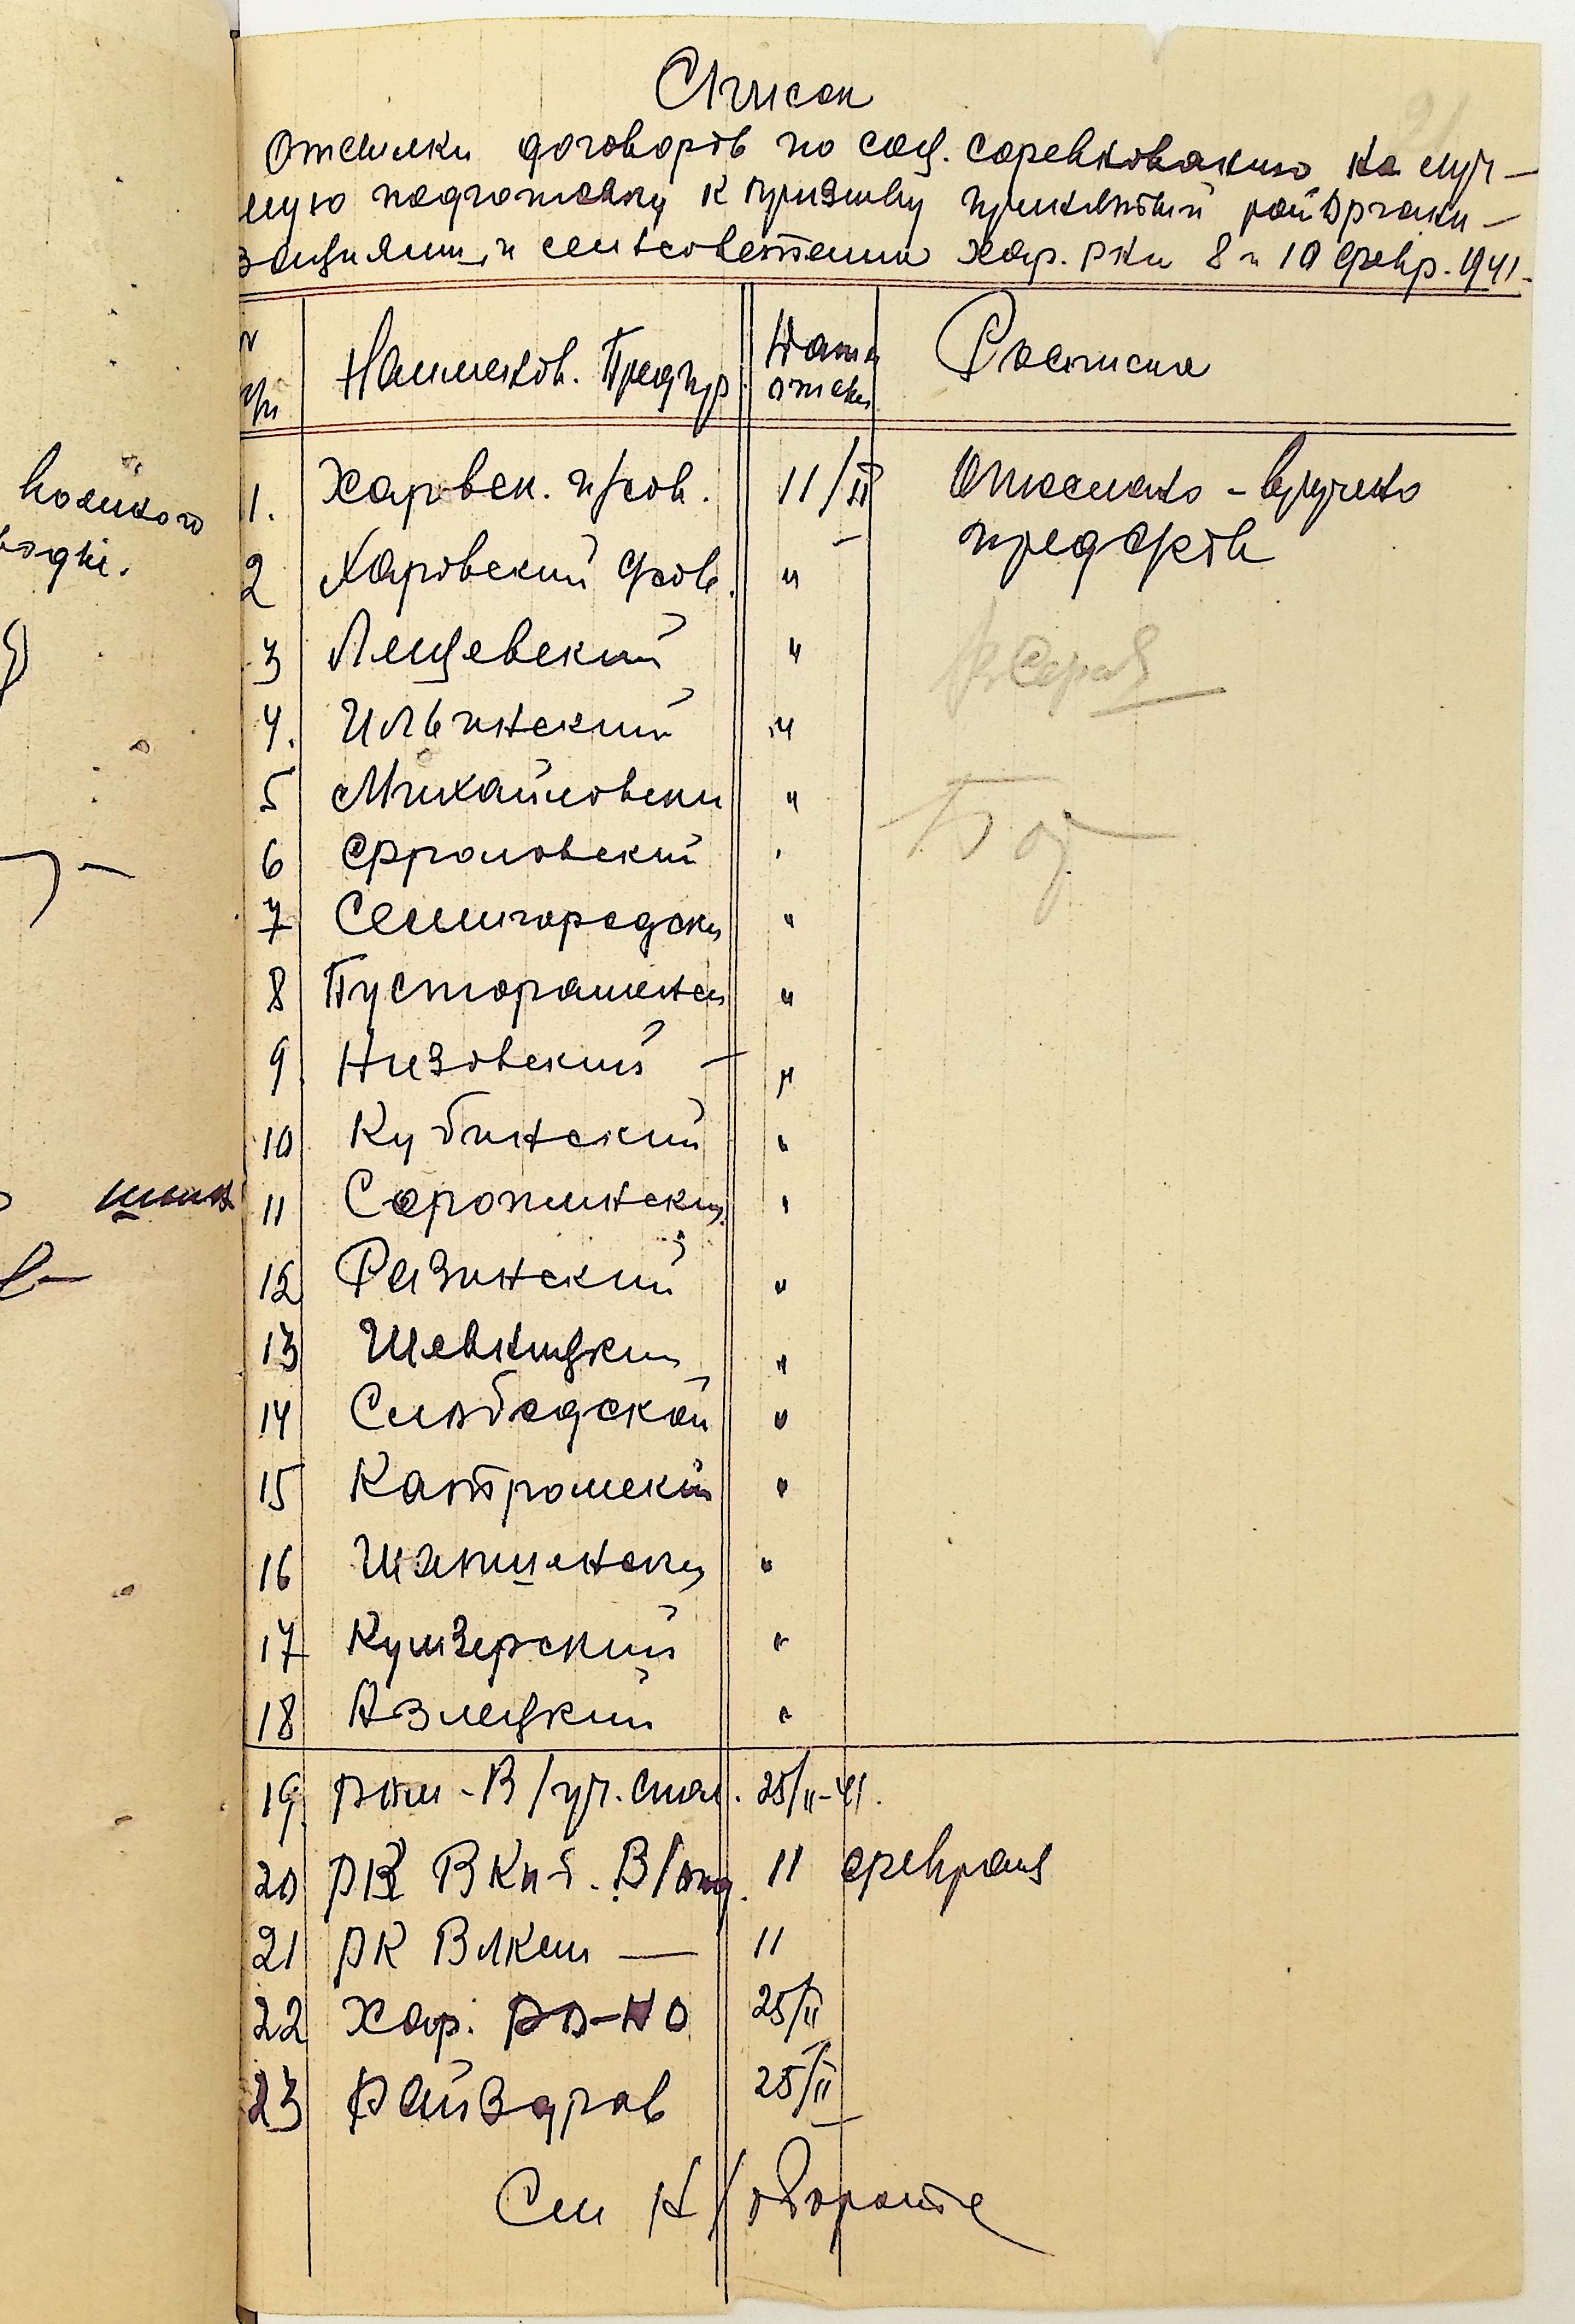 Список
Отсылки договоров по соц. соревнованию на луч-
шую подготовку к призыву принятый райоргани-
зациями и сельсоветами Хар. р-на 8 и 10 февр. 1941.
№ п/п Наименов. Предпр. Дата отсылк. Расписка
1. Харовск. п/сов. 11/II Отослано - вручено
предсов
2 Харовский с/сов. "
3 Лещевский "
4. Ильинский "
5 Михайловски "
6 Фроловский "
7 Семигородски "
8 Пустораменск "
9. Низовский - "
10 Кубинский "
11 Сорожинский "
12 Разинский "
13 Шевницкий "
14 Слободской "
15 Катромский "
16 Шапшински "
17 Кумзерский "
18 Азлецкий "
19. В/уч. стол. 25/II-41.
20 РК ВКПб. В/отд. 11 февраля
21 РК ВЛКСМ — 11
22 Хар. РО-НО 25/II
23 Райздрав 25/II
См Н/обороте
волинского
шинск